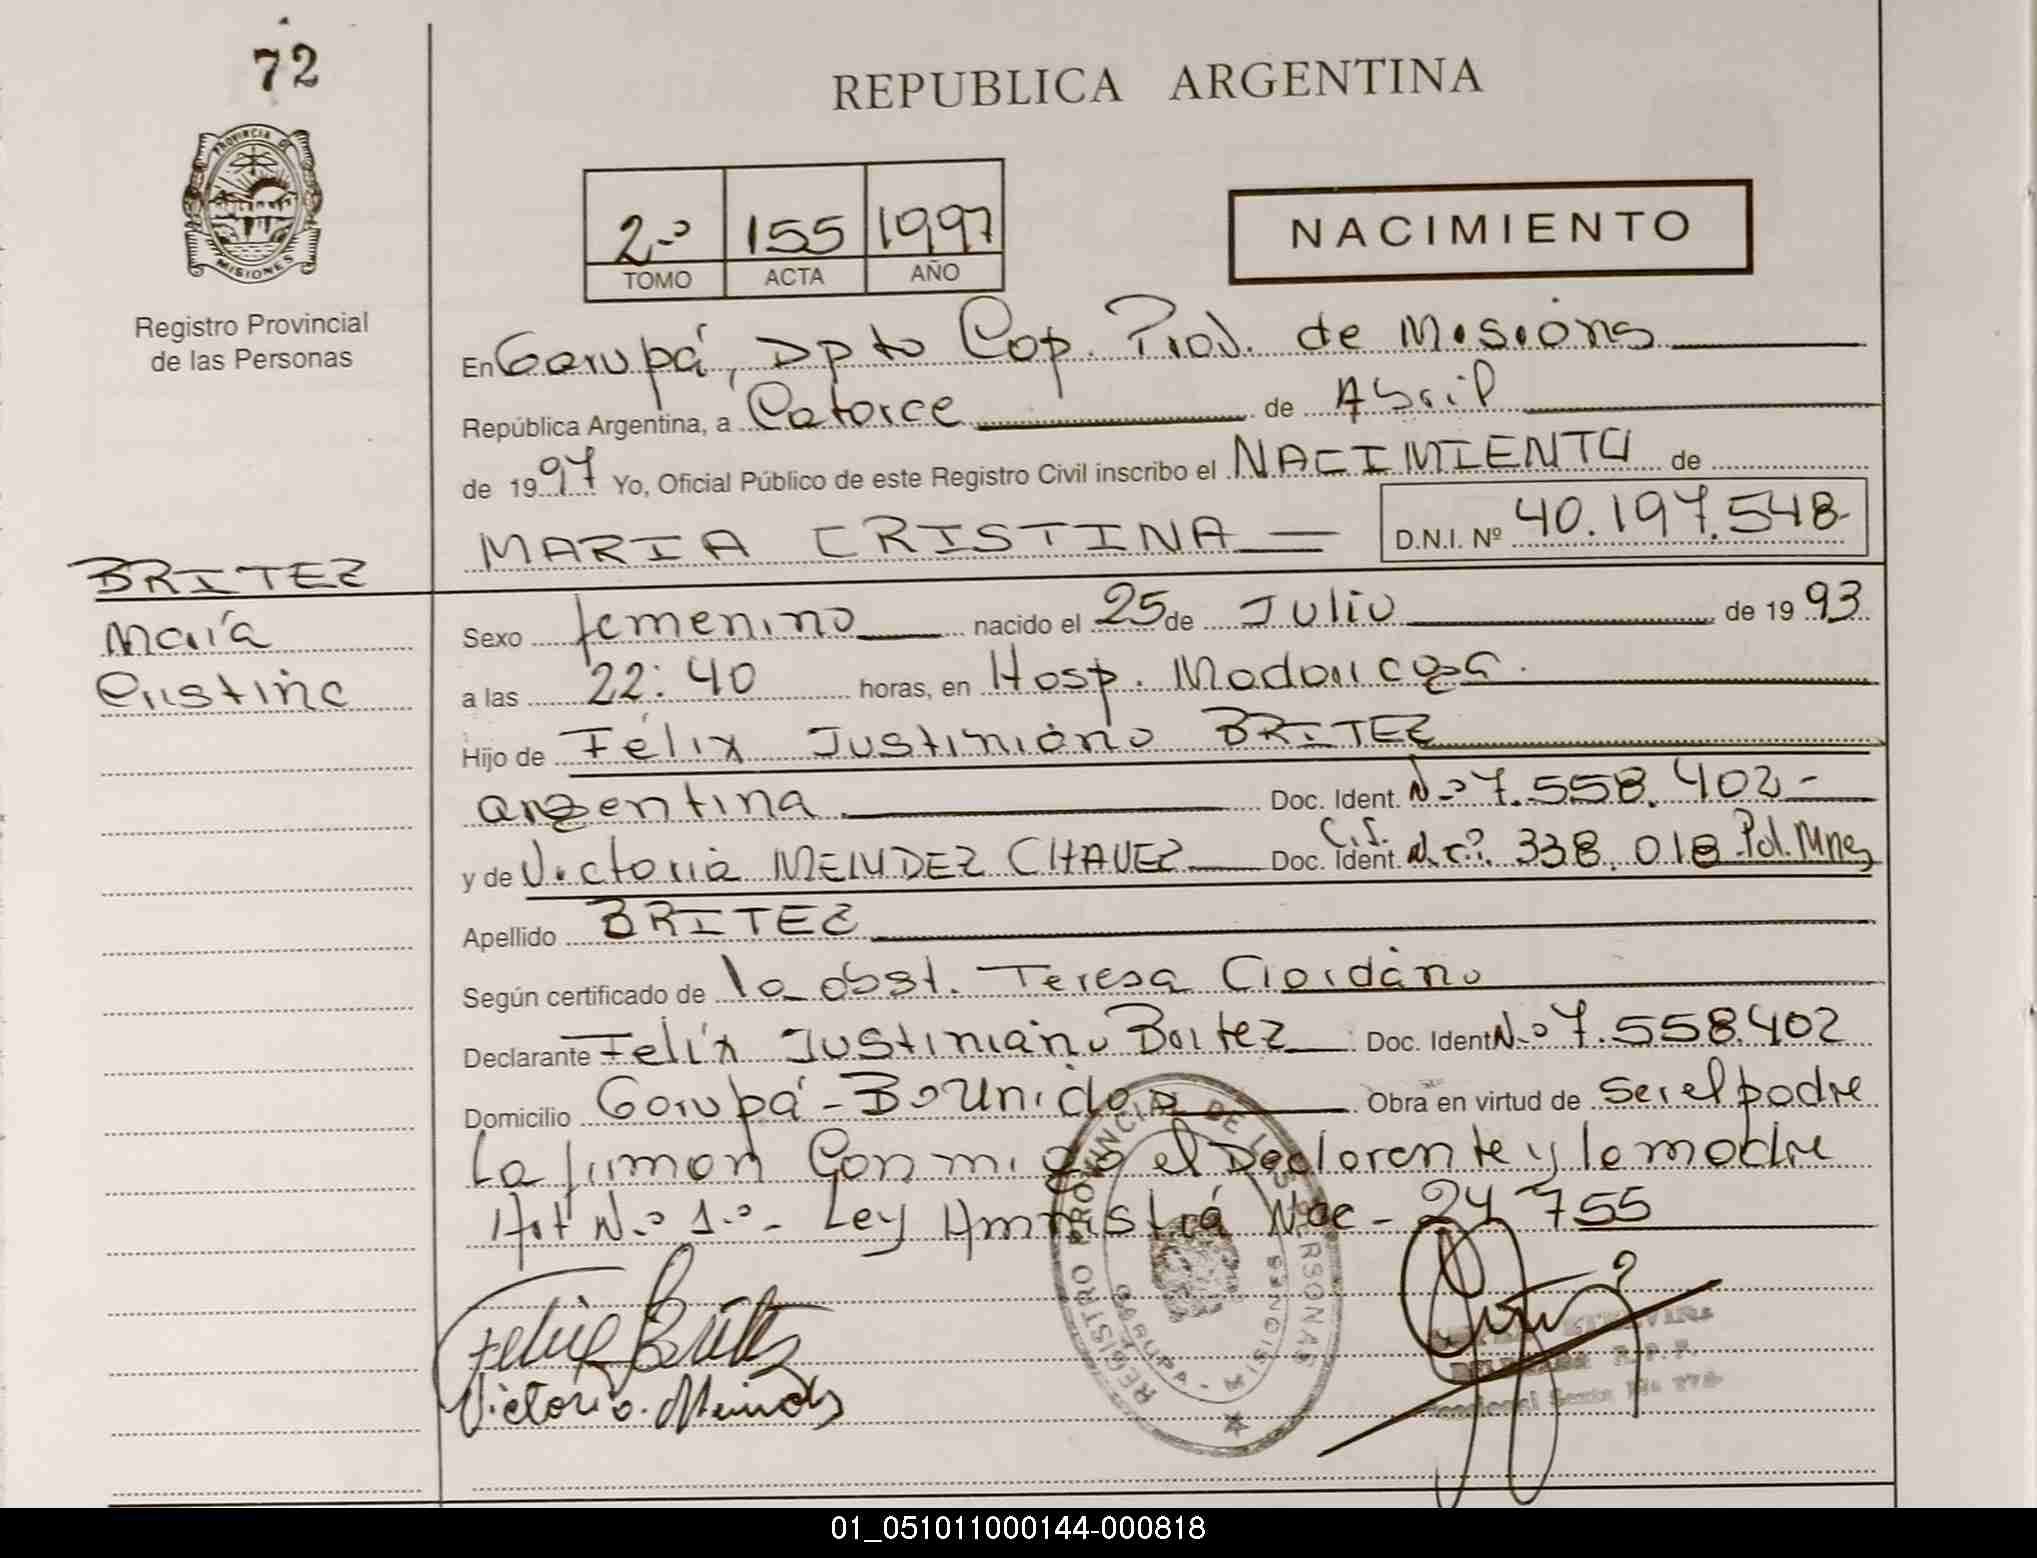 72
REPUBLICA ARGENTINA
PROVINCIA DE MISIONES
Registro Provincial
de las Personas
2º 155 1997
TOMO ACTA AÑO
NACIMIENTO
En Garupá, Dpto Cap. Prov. de Misiones
República Argentina, a Catorce de Abril
de 1997 Yo, Oficial Público de este Registro Civil inscribo el NACIMIENTO de
MARIA CRISTINA D.N.I. Nº 40.197.548-
BRITEZ
María
Cristina
Sexo femenino nacido el 25 de Julio de 1993
a las 22:40 horas, en Hosp. Madariaga.
Hijo de Félix Justiniano BRITEZ
argentina Doc. Ident. Nº 7.558.402-
y de Victoria MENDEZ CHAVEZ Doc. Ident. C.I. Nº 338.018 Pol. Mnes
Apellido BRITEZ
Según certificado de la obst. Teresa Giordano
Declarante Felix Justiniano Britez Doc. Ident Nº 7.558.402
Domicilio Garupá - Bº Unidos Obra en virtud de ser el padre
La firman Conmigo el Declarante y la madre
Art Nº 1º- Ley Amnistía Nac - 24 755
Felix Britez
Victoria. Mendez
REGISTRO PROVINCIAL DE LAS PERSONAS
GARUPA - MISIONES
R.P.P.
01_051011000144-000818